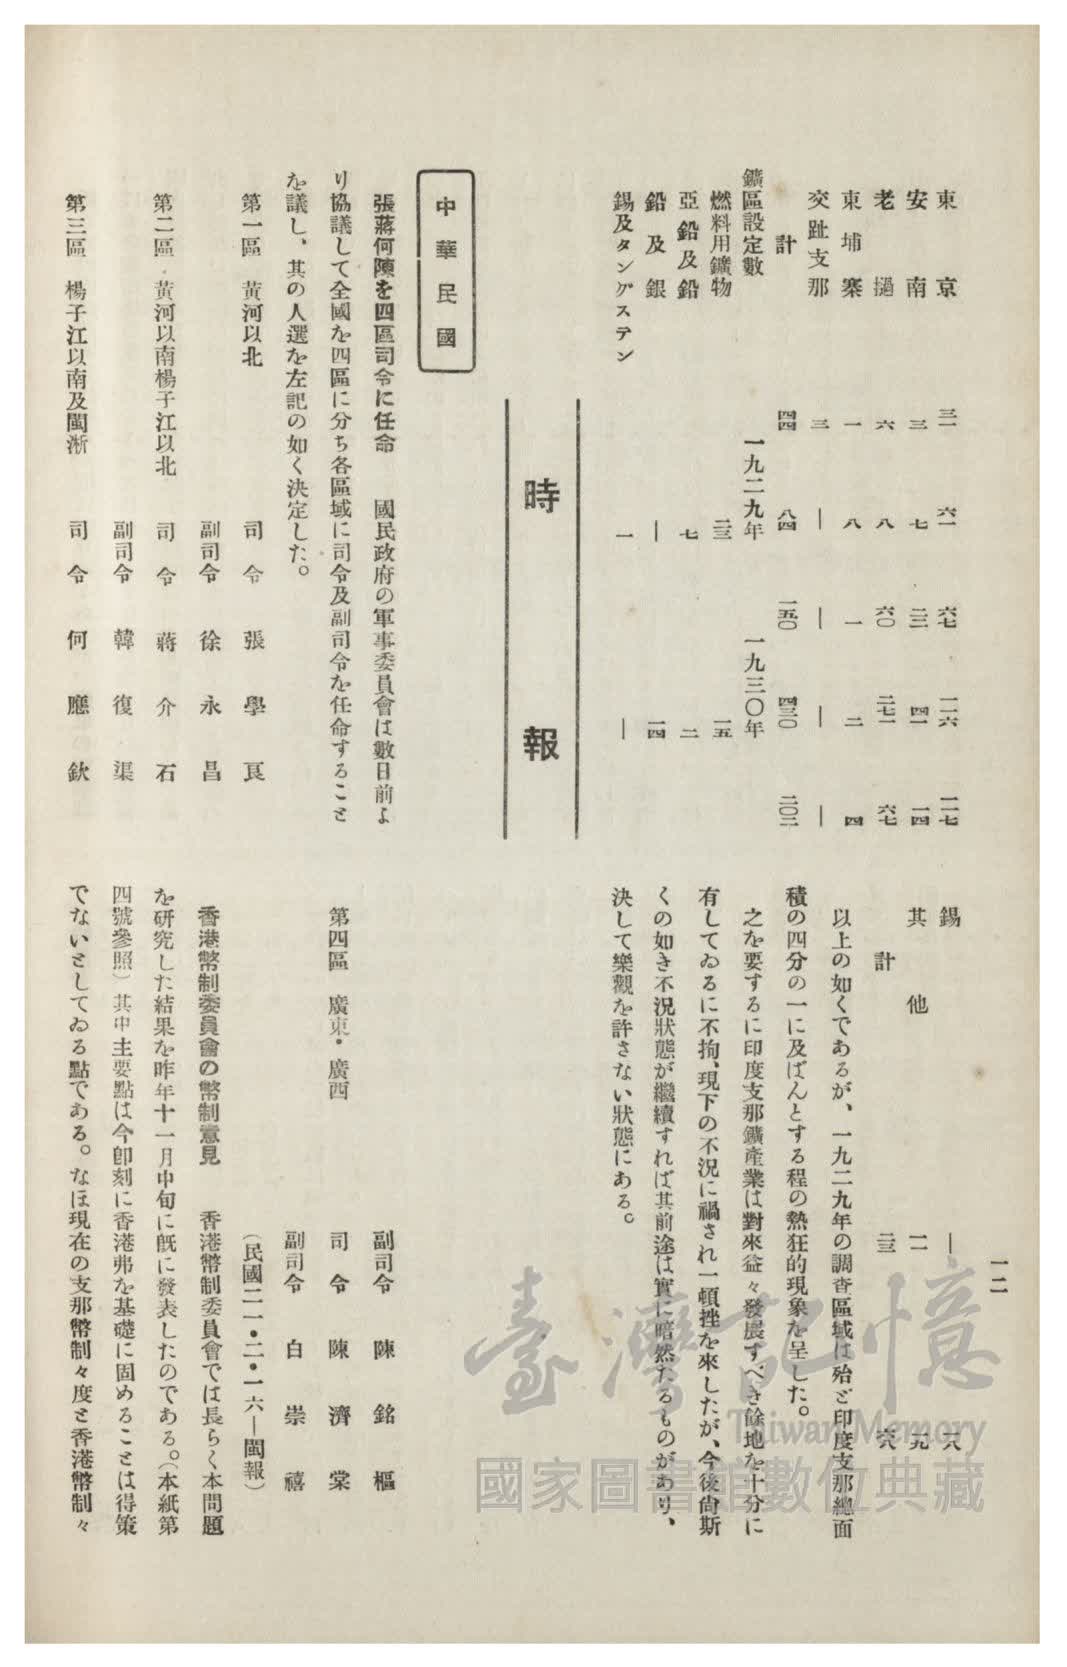 東京 三一 六一 六七 一一六 一一七
安南 三 七 二三 四一 一四
老撾 六 八 六〇 二七一 六七
東埔寨 一 八 一 二 四
交趾支那 三 ― ― ― ―
計 四四 八四 一五〇 四三〇 二〇二
鑛區設定數 一九二九年 一九三〇年
燃料用鑛物 二三 一五
亞鉛及鉛 七 二
鉛及銀 ― 一四
錫及タングステン 一 ―
錫 ― 一八
其他 一一 一九
計 二三 六八
以上の如くであるが、一九二九年の調査區域は殆ど印度支那總面
積の四分の一に及ばんとする程の熱狂的現象を呈した。
之を要するに印度支那鑛產業は對來益々發展すべき餘地を十分に
有してゐるに不拘、現下の不況に禍され一頓挫を來したが、今後尙斯
くの如き不況狀態が繼續すれば其前途は實に暗然たるものがあり、
決して樂觀を許さない狀態にある。
時報
中華民國
張蔣何陳を四區司令に任命 國民政府の軍事委員會は數日前よ
り協議して全國を四區に分ち各區域に司令及副司令を任命すること
を議し、其の人選を左記の如く決定した。
第一區 黃河以北 司令 張學良
副司令 徐永昌
第二區 黃河以南楊子江以北 司令 蔣介石
副司令 韓復渠
第三區 楊子江以南及閩浙 司令 何應欽
副司令 陳銘樞
第四區 廣東・廣西 司令 陳濟棠
副司令 白崇禧
（民國二一・二・一六―閩報）
香港幣制委員會の幣制意見 香港幣制委員會では長らく本問題
を硏究した結果を昨年十一月中旬に旣に發表したのである。（本紙第
四號參照）其中主要點は今卽刻に香港弗を基礎に固めることは得策
でないとしてゐる點である。なほ現在の支那幣制々度と香港幣制々
一二
臺灣記憶
Taiwan Memory
國家圖書館數位典藏